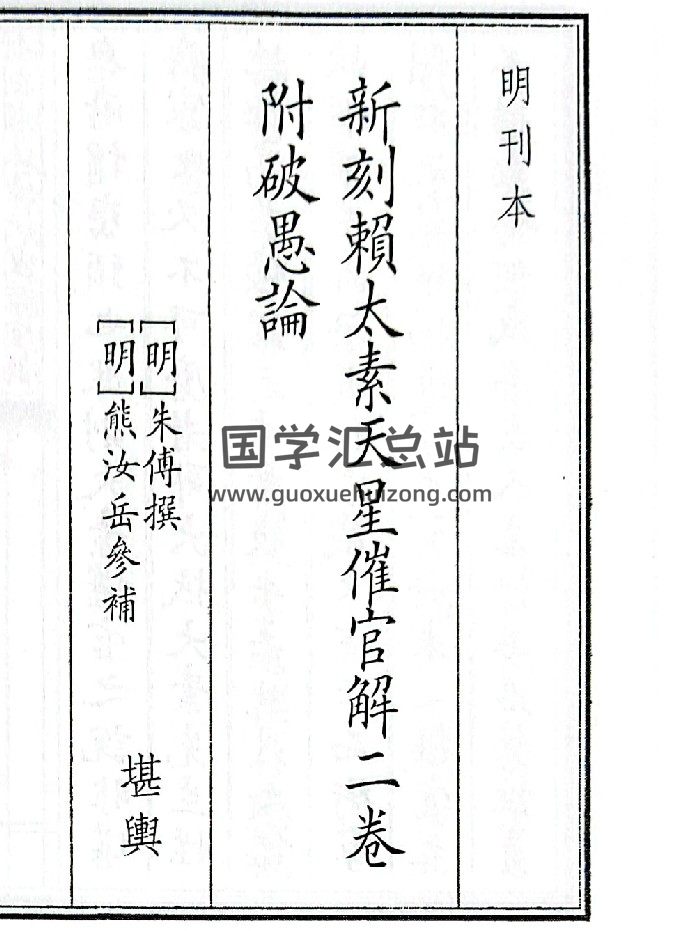 明刊本
新刻賴太素天星催官解二卷
附破愚論
[明]朱傅撰
[明]熊汝岳參補
堪輿
国学汇总站
www.guoxuehuizong.com